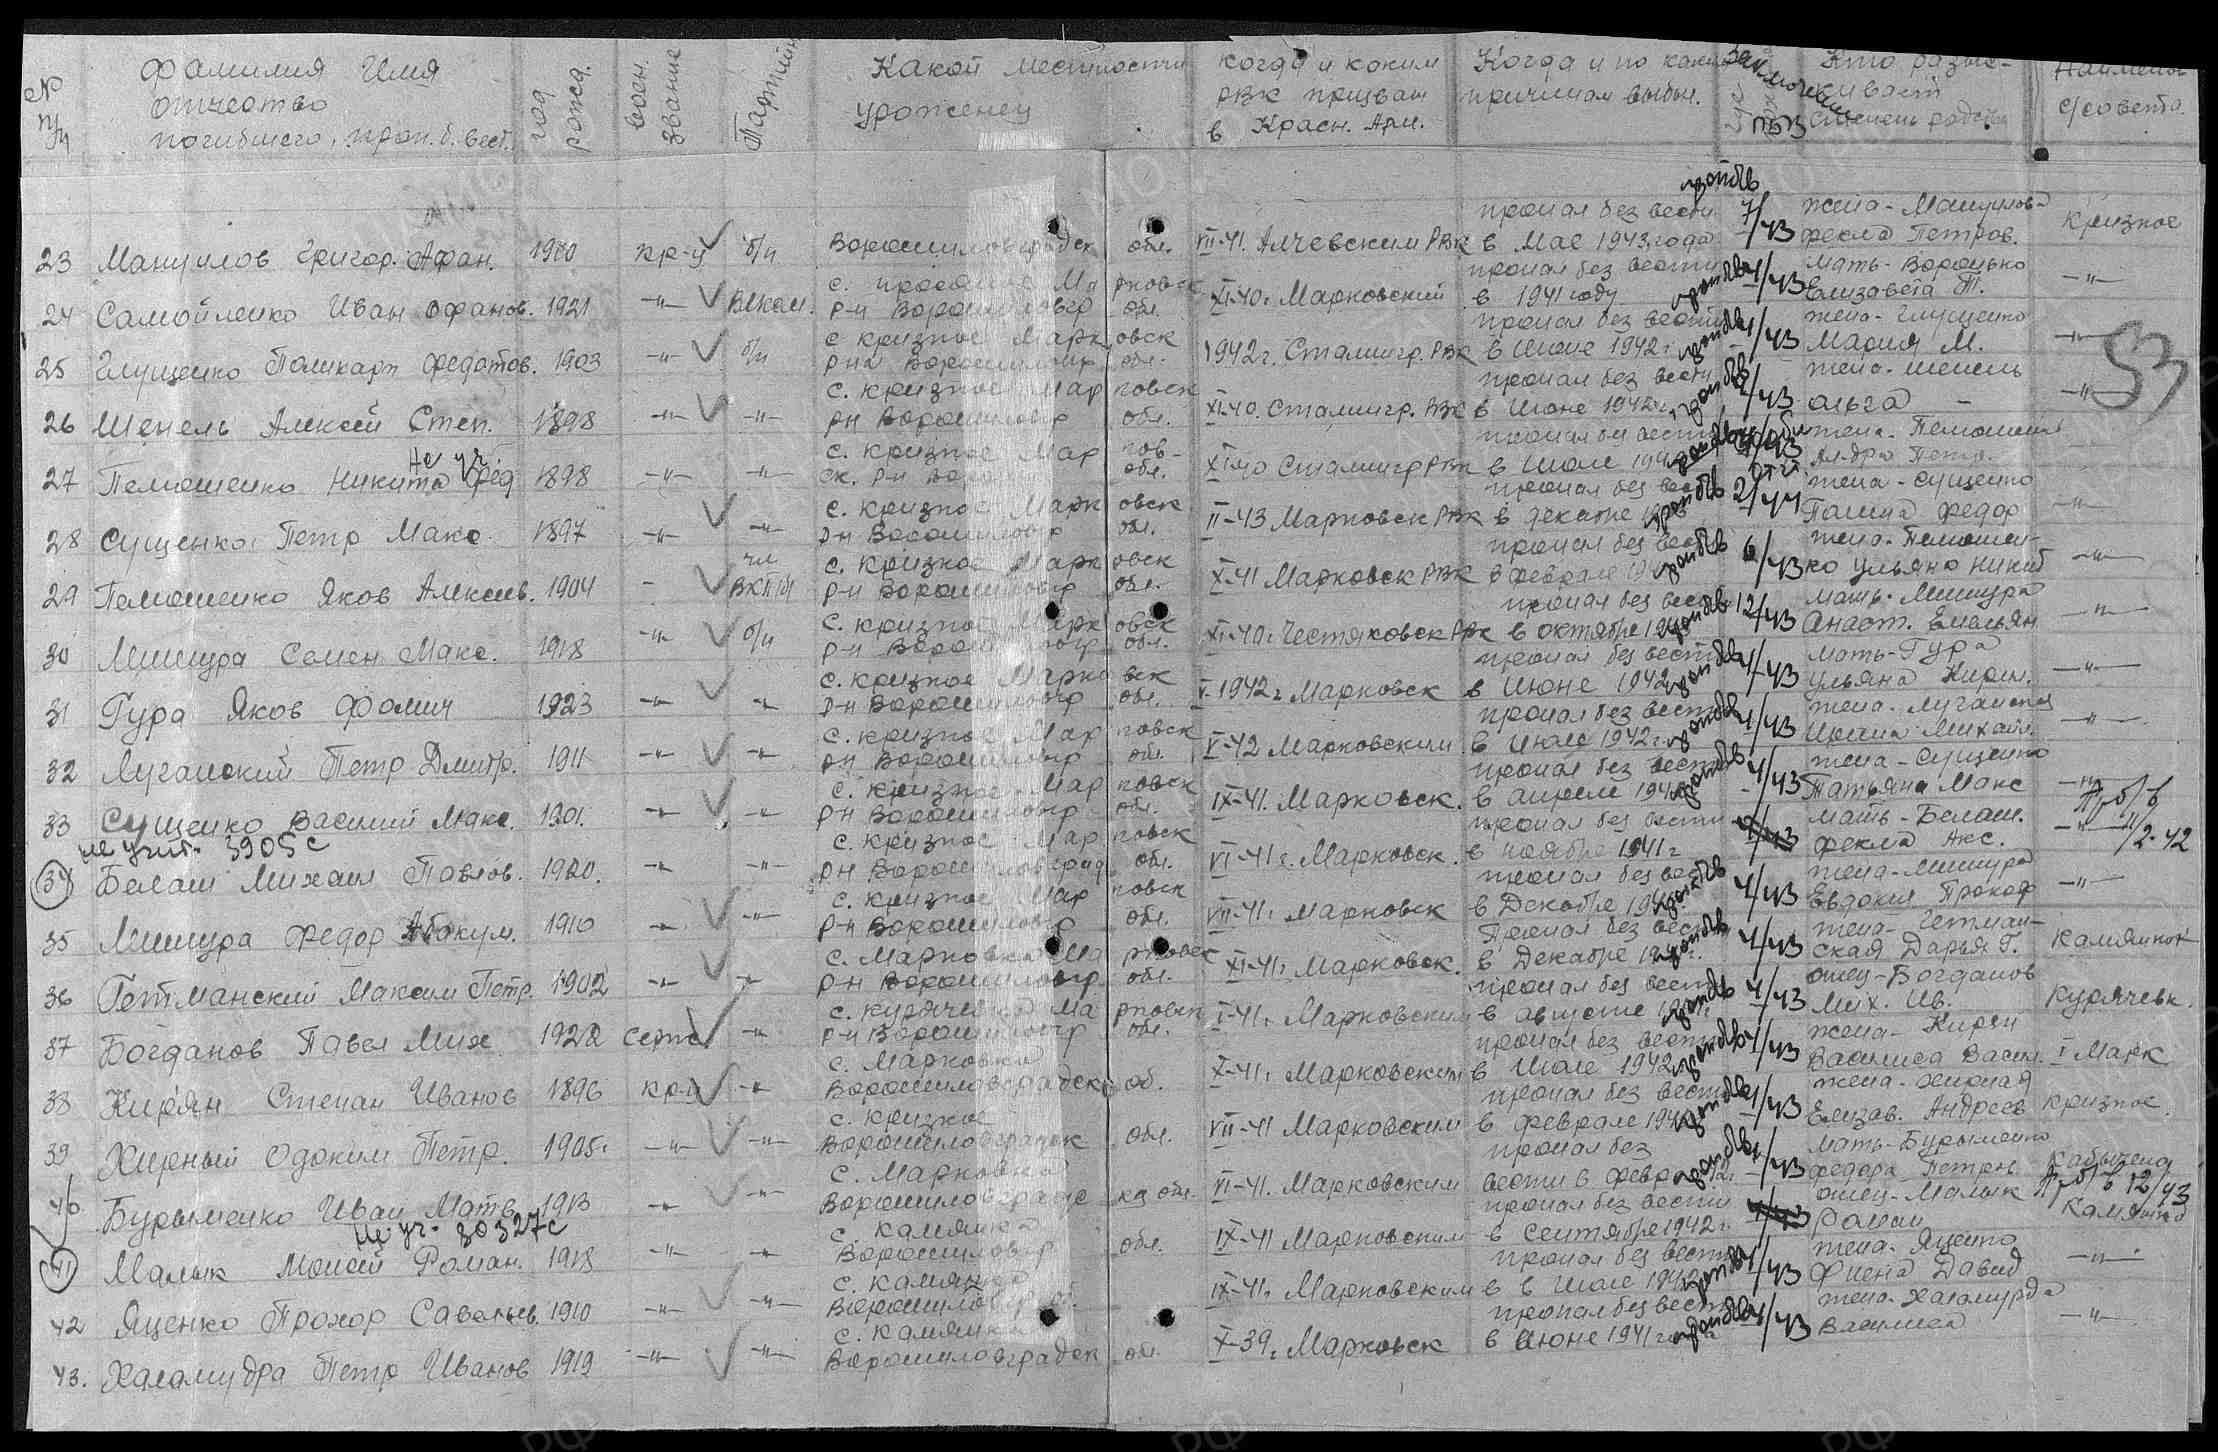 № п/п
Фамилия Имя
отчество
погибшего, проп. б. вест.
год рожд.
воен. звание
Партийн
Какой местности
уроженец
когда и каким
РВК призван
в Красн. Арм.
Когда и по каким
причинам выбыл.
Кто разыс-
кивает
степень родства
Наименов
с/совета.
53
23 Мануилов Григор. Афан. 1900 кр-ц б/п Ворошиловградск обл. VII-41. Алчевским РВК
пропал без вести
в Мае 1943 года 7/43
жена - Мануилова
Фекла Петров. Кризное
24 Самойленко Иван Афанов. 1921 -"- ВЛКСМ
р-н Ворошиловгр обл. XI-40г Марковский
пропал без вести
в 1941 году 1/43
мать - Воронько
Елизавета Т. -"-
25 Глущенко Поликарп Федотов. 1903 -"- б/п
с Кризное Марковск
р-на Ворошиловгр обл. 1942г. Сталингр. РВК
пропал без вести
в Июне 1942г 1/43
жена - Глущенко
Мария М. -"-
26 Шепель Алексей Степ. 1898 -"- -"-
с. Кризное Марковск
рн Ворошиловгр обл. XI-40. Сталингр. РВК
пропал без вести
в Июне 1942г /43
жена - Шепель
Ольга - -"-
Не уч.
27 Пелюшенко Никита Фед 1898 -"- -"-
с. Кризное Марков-
ск. р-н обл. XI-40 Сталингр РВК
пропал без вести
в Июле
28 Сущенко Петр Макс. 1897 -"- -"-
с. Кризное Марковск
р-н Ворошиловгр обл. II-43 Марковск РВК
пропал без вести
в декабре 2/44
жена - Сущенко
Федор -"-
29 Пелюшенко Яков Алексеев. 1904 - чл ВКП/б/
с. Кризное Марковск
р-н Ворошиловгр обл. X-41 Марковск РВК
пропал без вести
в феврале 6/43
жена - Пелюшен-
ко Ульяна Никит -"-
30 Мишура Семен Макс. 1918 -"- б/п
с. Кризное Марковск
р-н Ворошиловгр обл. XI-40г Чистяковск РВК
пропал без вести
в октябре 12/43
мать - Мишура
Анаст. Емельян -"-
31 Гура Яков Фомич 1923 -"- -"-
с. Кризное Марковск
р-н Ворошиловгр обл. V-1942г Марковск
пропал без вести
в Июне 1942 1/43
мать - Гура
Ульяна Кирил. -"-
32 Луганский Петр Дмитр. 1911 -"- -"-
с. Кризное Марковск
рн Ворошиловгр обл. V-42 Марковским
пропал без вести
в Июле 1942г. 1/43
жена - Луганская
Ирина Михайл. -"-
33 Сущенко Василий Макс. 1901. -"- -"-
с. Кризное Марковск
р-н Ворошиловгр обл. IX-41. Марковск.
пропал без вести
в апреле 4/43
жена - Сущенко
Татьяна Макс -"-
не учит. 3905с
34 Белаш Михаил Павлов. 1920. -"- -"-
с. Кризное Марковск
рн Ворошиловград. обл. VI-41г. Марковск.
пропал без вести
в ноябре 1941г
мать - Белаш.
Фекла Акс. -"- Пр б/в 2-42
35 Мишура Федор Абакум. 1910 -"- -"-
с. Кризное Марковск
р-н Ворошиловгр обл. VII-41г Марковск
пропал без вести
в Декабре 4/43
жена - Мишура
Евдокия Прокоф -"-
36 Гетманский Максим Петр. 1902 -"- -"-
с. Марковка Марковск
р-н Ворошиловгр. обл. XI-41г Марковск.
Пропал без вести
в Декабре 4/43
жена - Гетман-
ская Дарья Г. Камянкск
37 Богданов Павел Мих 1922 серж. -"-
с. Курячевка Марковск
р-н Ворошиловгр обл. I-41г Марковским
пропал без вести
в августе 4/43
отец - Богданов
Мих. Ив. Курячевк.
38 Кирян Степан Иванов 1896 кр-ц -"-
с. Марковка
Ворошиловградск об. X-41г Марковским
пропал без вести
в Июле 1942 1/43
жена - Кирян
Василиса Васил. I Марк
39 Хирный Одоким Петр. 1905г -"- -"-
с. Кризное
Ворошиловградск обл. VII-41 Марковским
пропал без вести
в феврале 1/43
жена - Хирная
Елизав. Андреев Кризное.
40 Бурыменко Иван Матв. 1913 -"- -"-
с. Марковка
Ворошиловградс ка обл. VI-41. Марковским
пропал без
вести в февр 1/43
мать - Бурыменко
Федора Петрв.
Не уч. 30327с
41 Малык Моисей Роман. 1918 -"- -"-
с. Камянка
Ворошиловгр обл. IX-41 Марковским
пропал без вести
в сентябре 1942г.
отец - Малык
Роман Пр б/в 12/43 Камянка
42 Яценко Прохор Савельев. 1910 -"- -"-
с. Камянка
IX-41г Марковским
пропал без вести
в Июле 1/43
жена - Яценко
Давид -"-
43. Халамудра Петр Иванов 1919 -"- -"-
с. Камянка
Ворошиловградск обл. X-39г Марковск
пропал без вести
в Июне 1941 года 1/43
жена - Халамудра
Василиса -"-